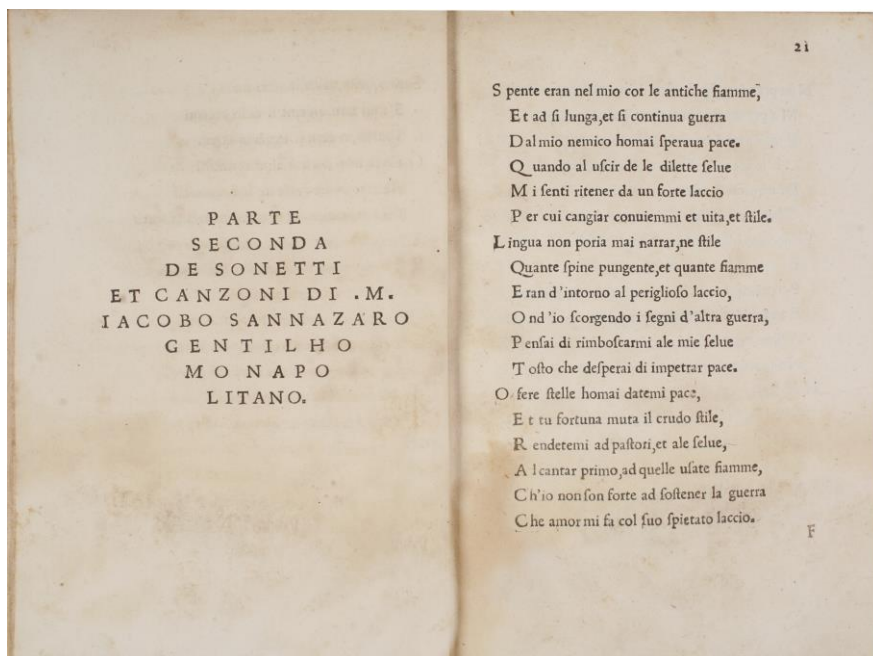 PARTE
SECONDA
DE SONETTI
ET CANZONI DI .M.
IACOBO SANNAZARO
GENTILHO
MO NAPO
LITANO.
21
Spente eran nel mio cor le antiche fiamme,
Et ad ſi lunga,et ſi continua guerra
Dal mio nemico homai ſperaua pace.
Quando al uſcir de le dilette ſelue
Mi ſenti ritener da un forte laccio
Per cui cangiar conuiemmi et uita,et ſtile.
Lingua non poria mai narrar,ne ſtile
Quante ſpine pungente,et quante fiamme
Eran d'intorno al periglioſo laccio,
Ond'io ſcorgendo i ſegni d'altra guerra,
Penſai di rimboſcarmi ale mie ſelue
Toſto che deſperai di impetrar pace.
O fere ſtelle homai datemi pace,
Et tu fortuna muta il crudo ſtile,
Rendetemi ad paſtori,et ale ſelue,
Al cantar primo,ad quelle uſate fiamme,
Ch'io non ſon forte ad ſoſtener la guerra
Che amor mi fa col ſuo ſpietato laccio.
F